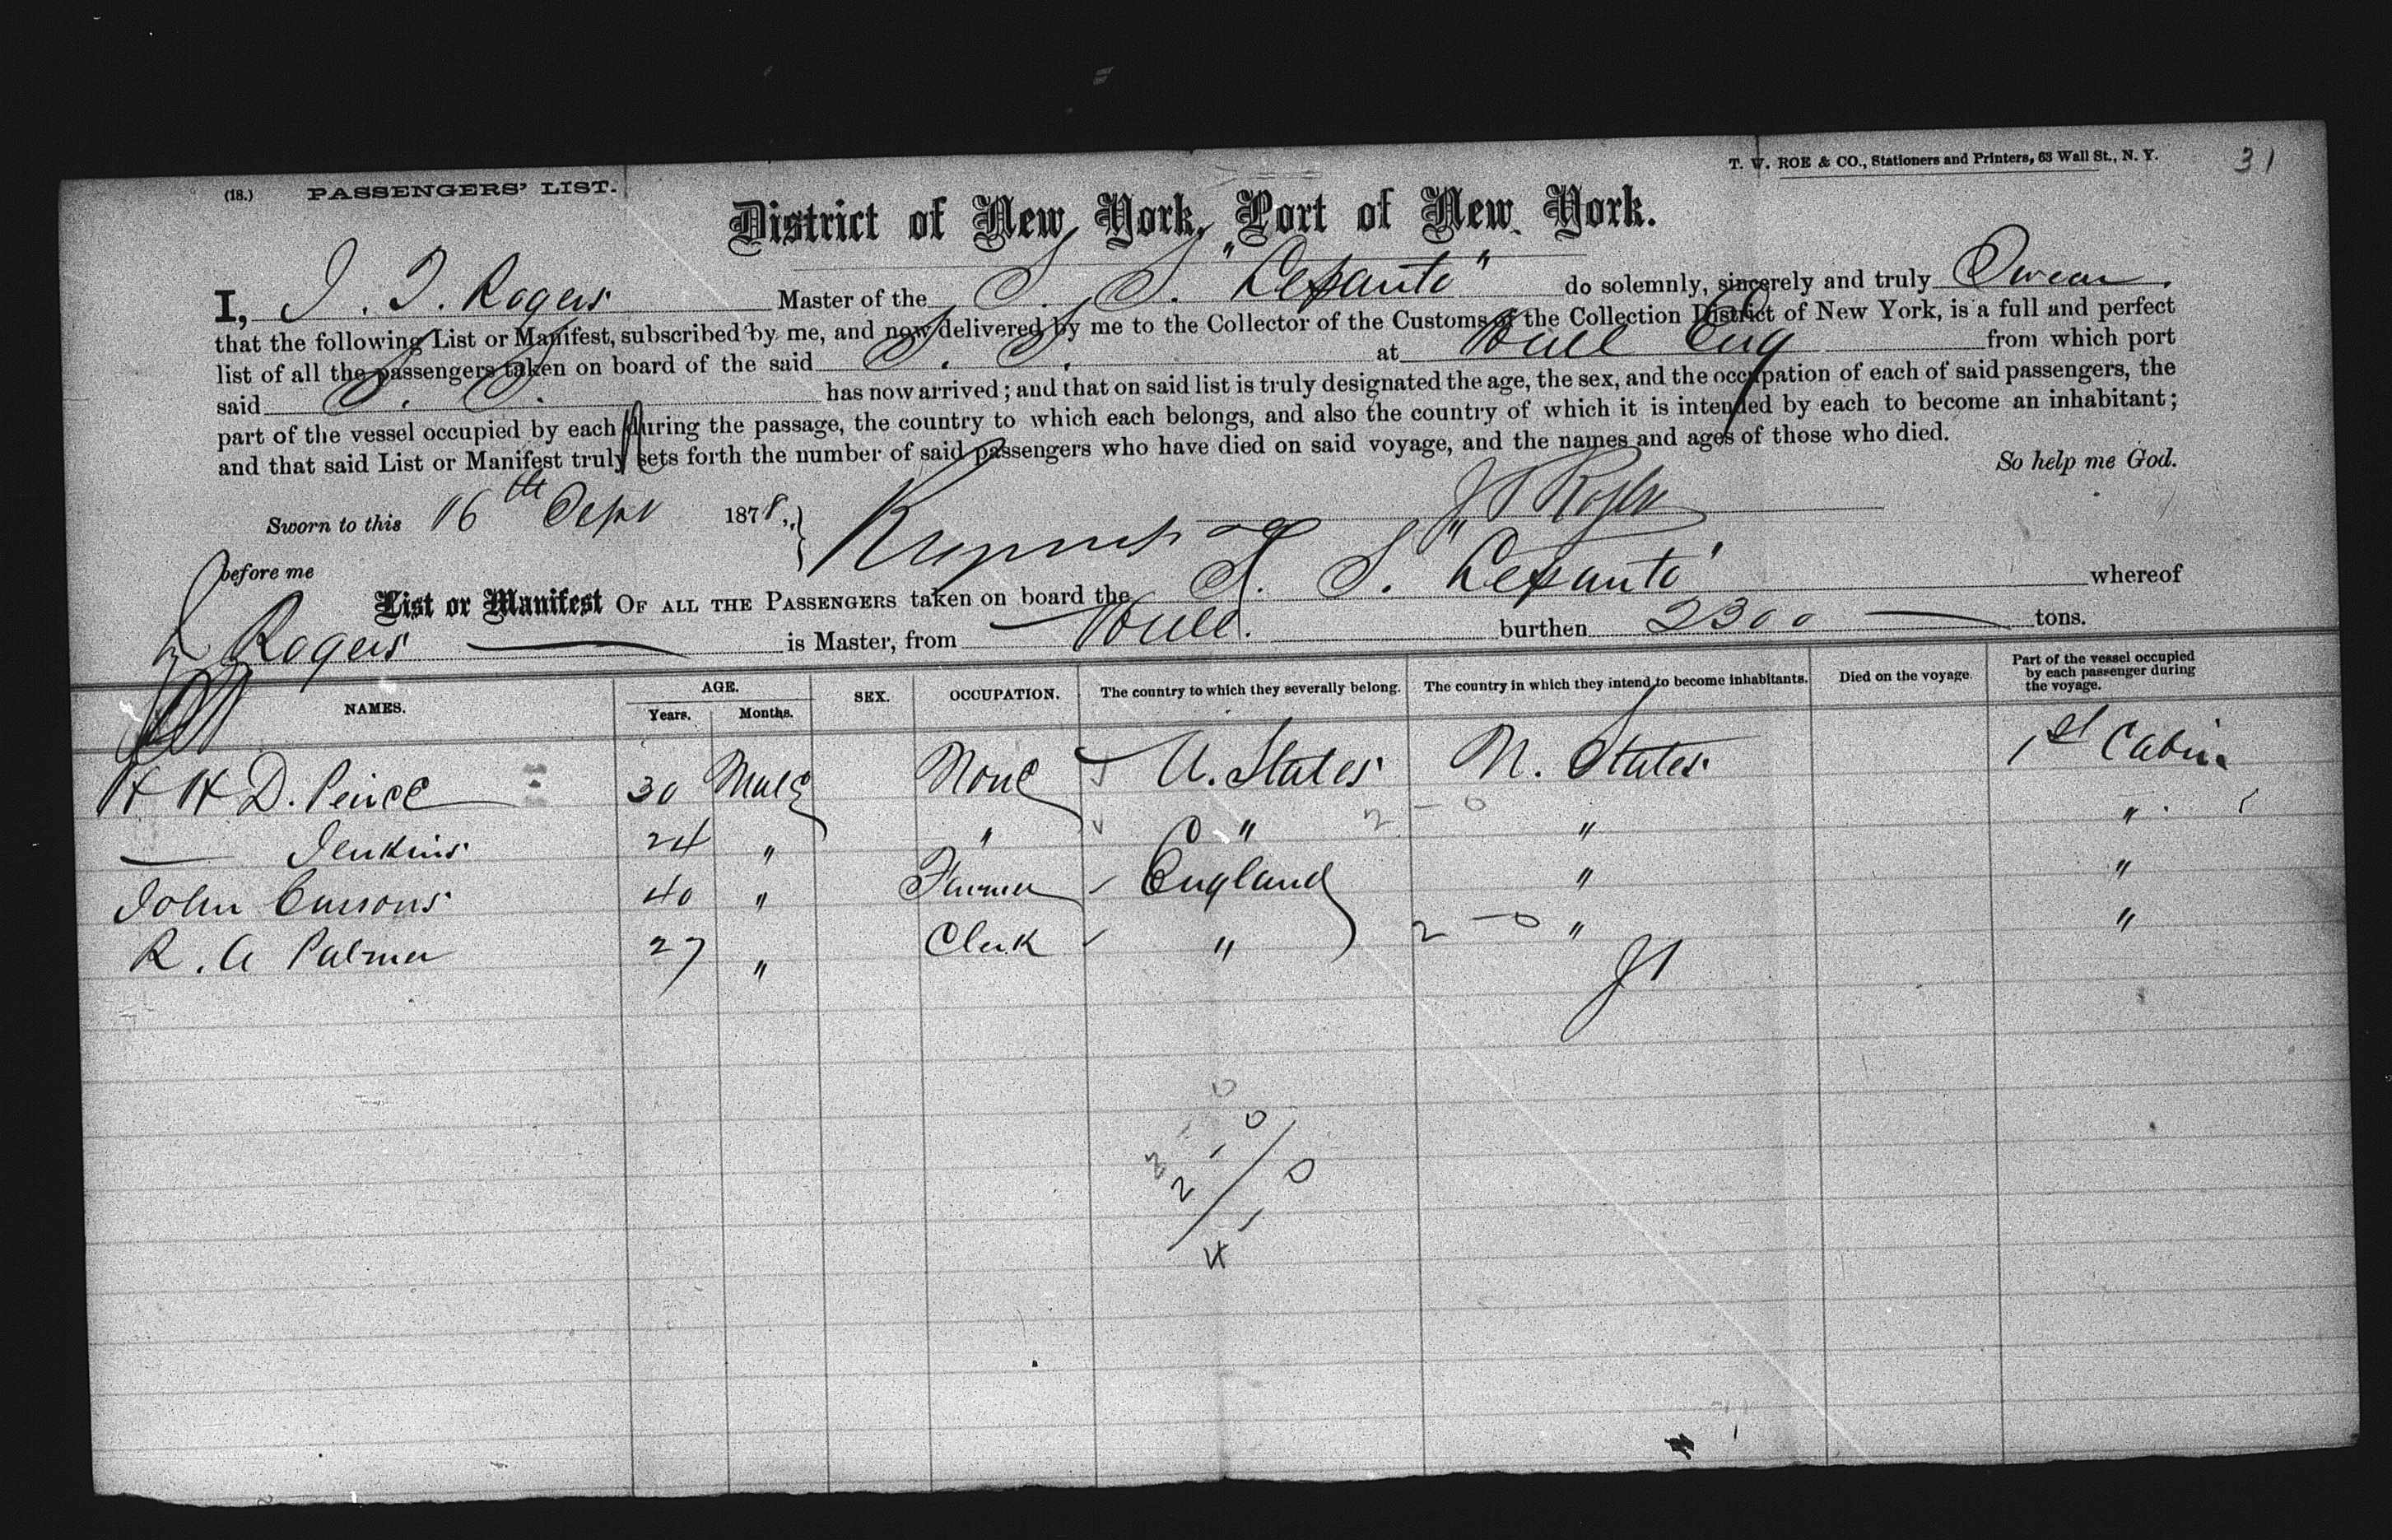 (18.) PASSENGERS' LIST.
T. W. ROE & CO., Stationers and Printers, 63 Wall St., N. Y.
31
District of New York, Port of New York.
I, J. T. Rogers Master of the S. S. "Lepanto" do solemnly, sincerely and truly Swear.
that the following List or Manifest, subscribed by me, and now delivered by me to the Collector of the Customs of the Collection District of New York, is a full and perfect
list of all the passengers taken on board of the said S. S. at Hull Eng from which port
said S. S. has now arrived; and that on said list is truly designated the age, the sex, and the occupation of each of said passengers, the
part of the vessel occupied by each during the passage, the country to which each belongs, and also the country of which it is intended by each to become an inhabitant;
and that said List or Manifest truly sets forth the number of said passengers who have died on said voyage, and the names and ages of those who died.
So help me God.
Sworn to this 16th Sept 1878,
before me
List or Manifest OF ALL THE PASSENGERS taken on board the S. S. "Lepanto" whereof
Rogers is Master, from Hull. burthen 2300 tons.
NAMES. AGE. Years. Months. SEX. OCCUPATION. The country to which they severally belong. The country in which they intend to become inhabitants. Died on the voyage. Part of the vessel occupied by each passenger during the voyage.
H H D. Peirce 30 Male None U. States U. States 1st Cabin
— Jenkins 24 " " " " "
John Cursons 40 " Farmer England " "
R. A Palmer 27 " Clerk " " "